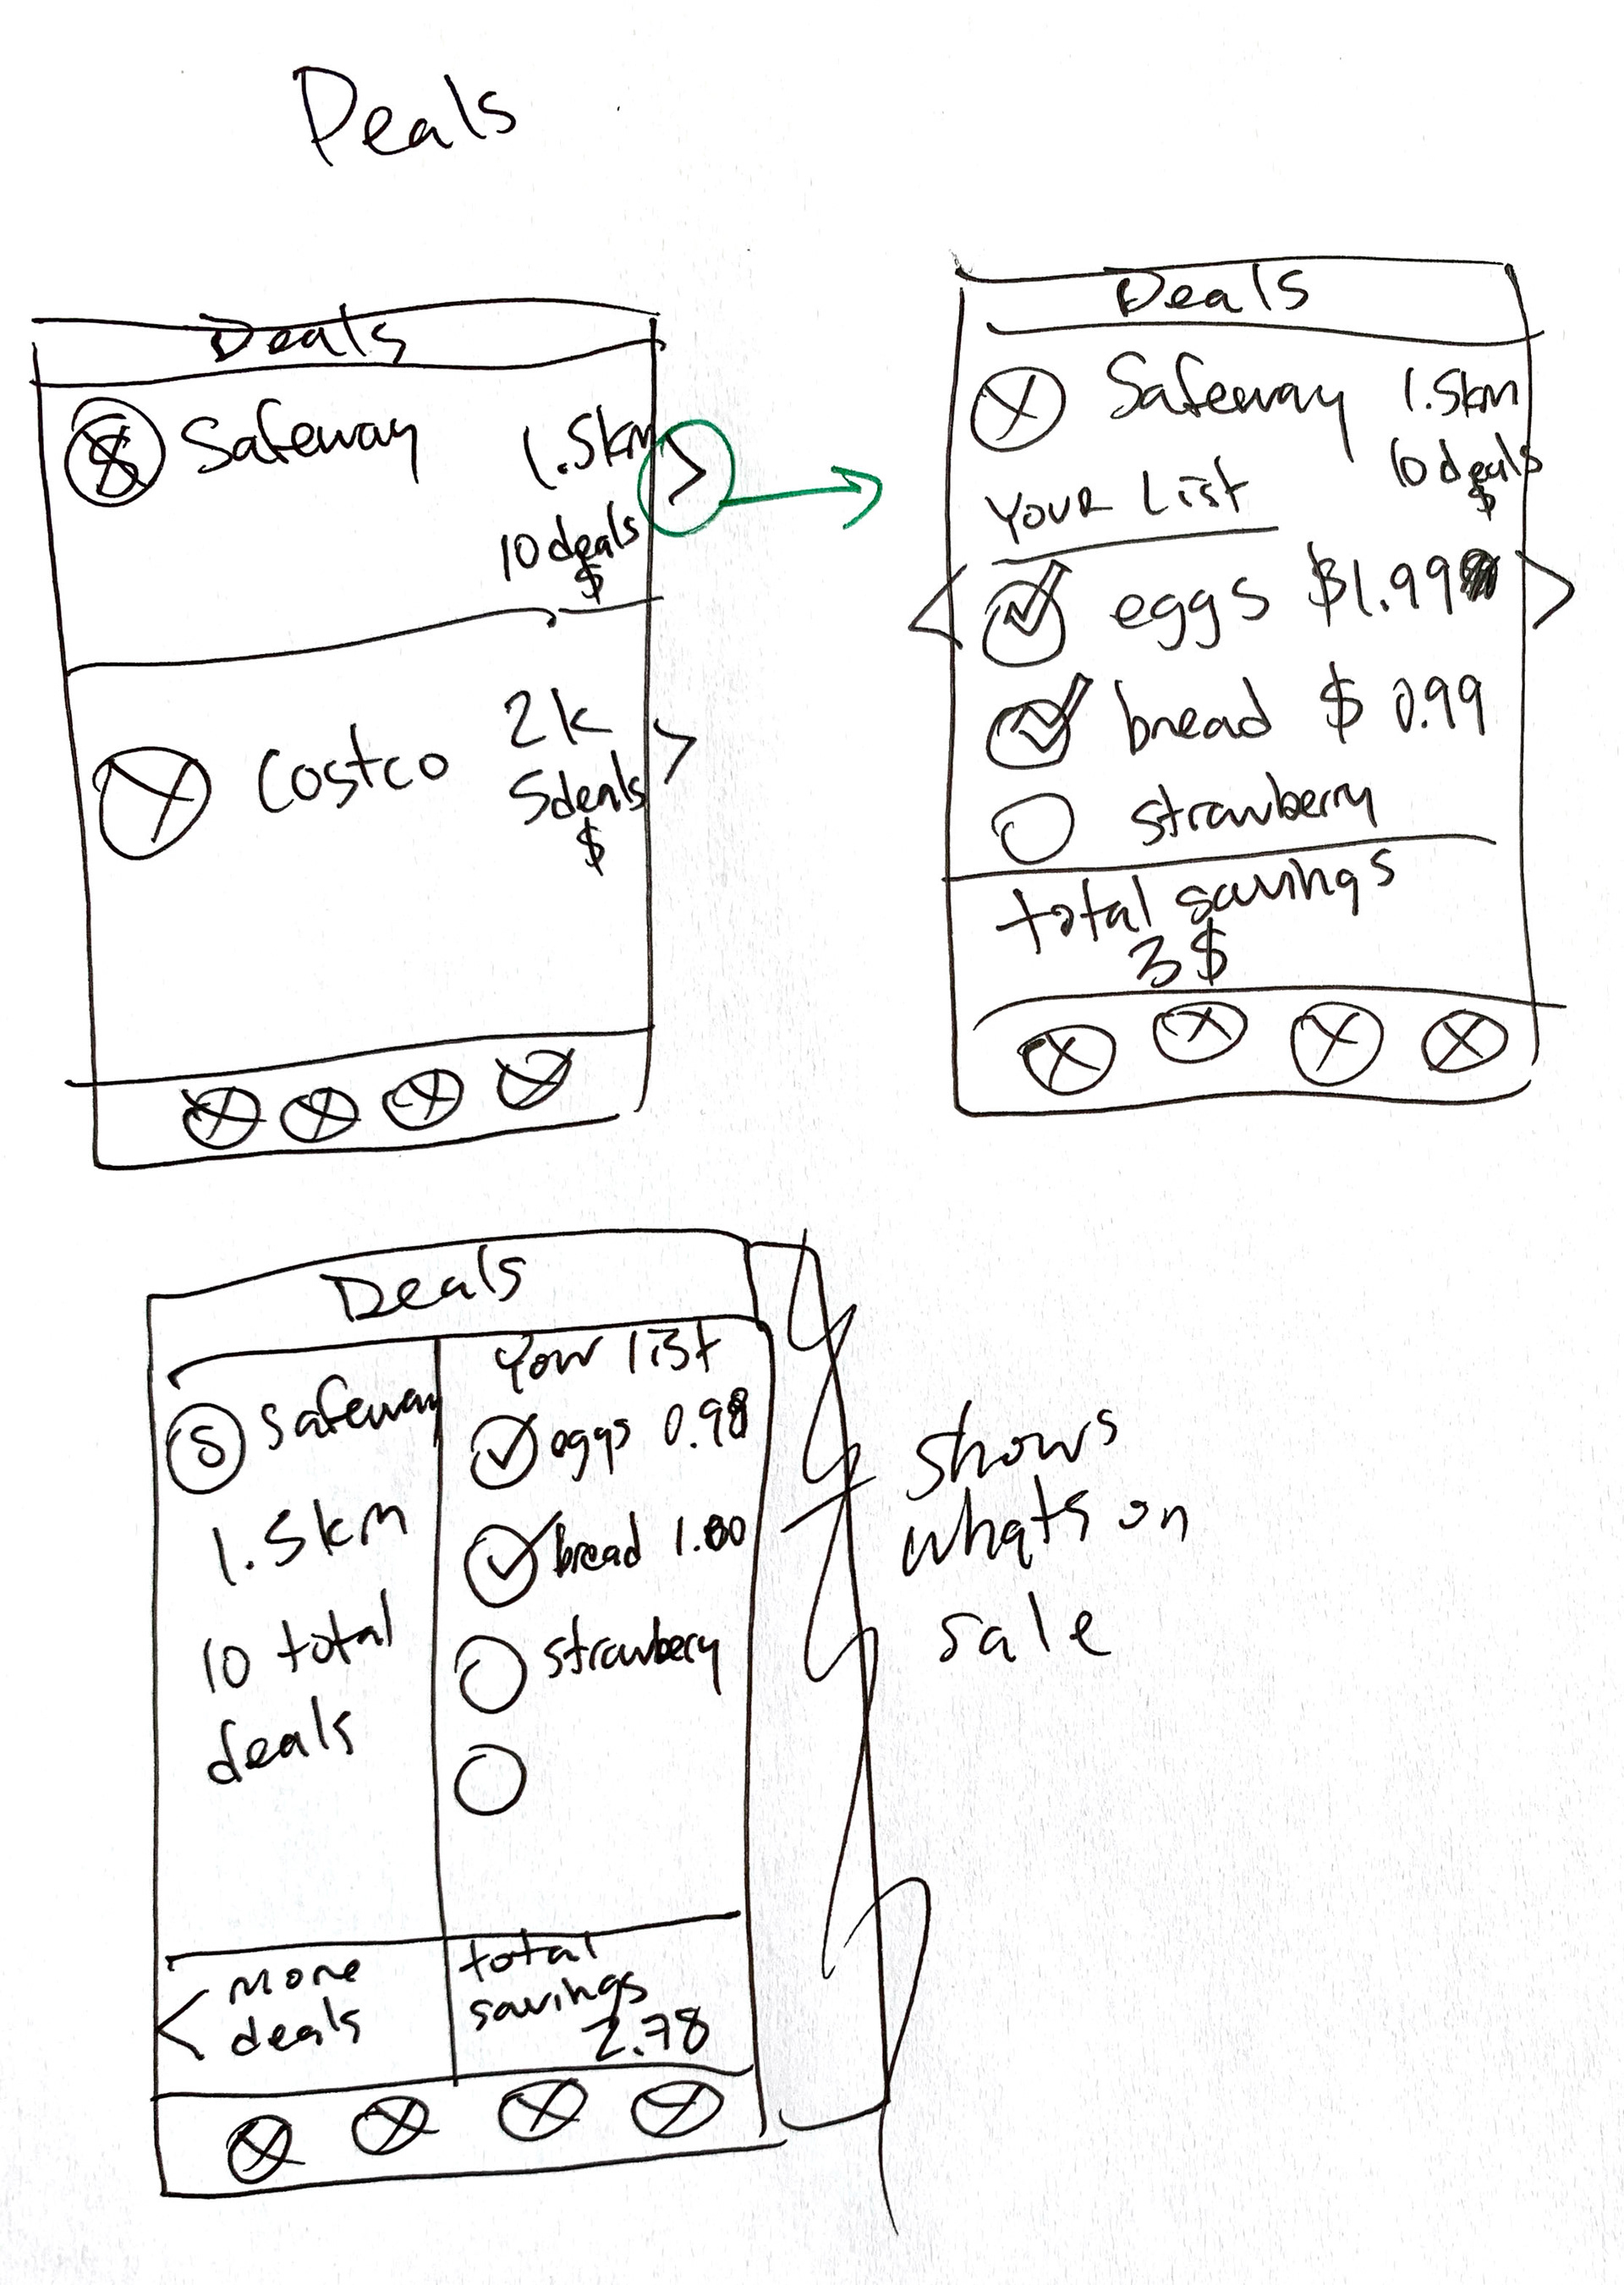 Deals
Deals
Safeway 1.5km
10 deals
$
>
Costco 2k
5deals
$
>
Deals
Safeway 1.5km
10 deals
$
YOUR LIST
< eggs $1.99 >
bread $ 0.99
strawberry
total savings
3$
Deals
S Safeway
1.5km
10 total
deals
< more
deals
Your list
eggs 0.98
bread 1.80
strawbery
total
savings
2.78
shows
whats on
sale